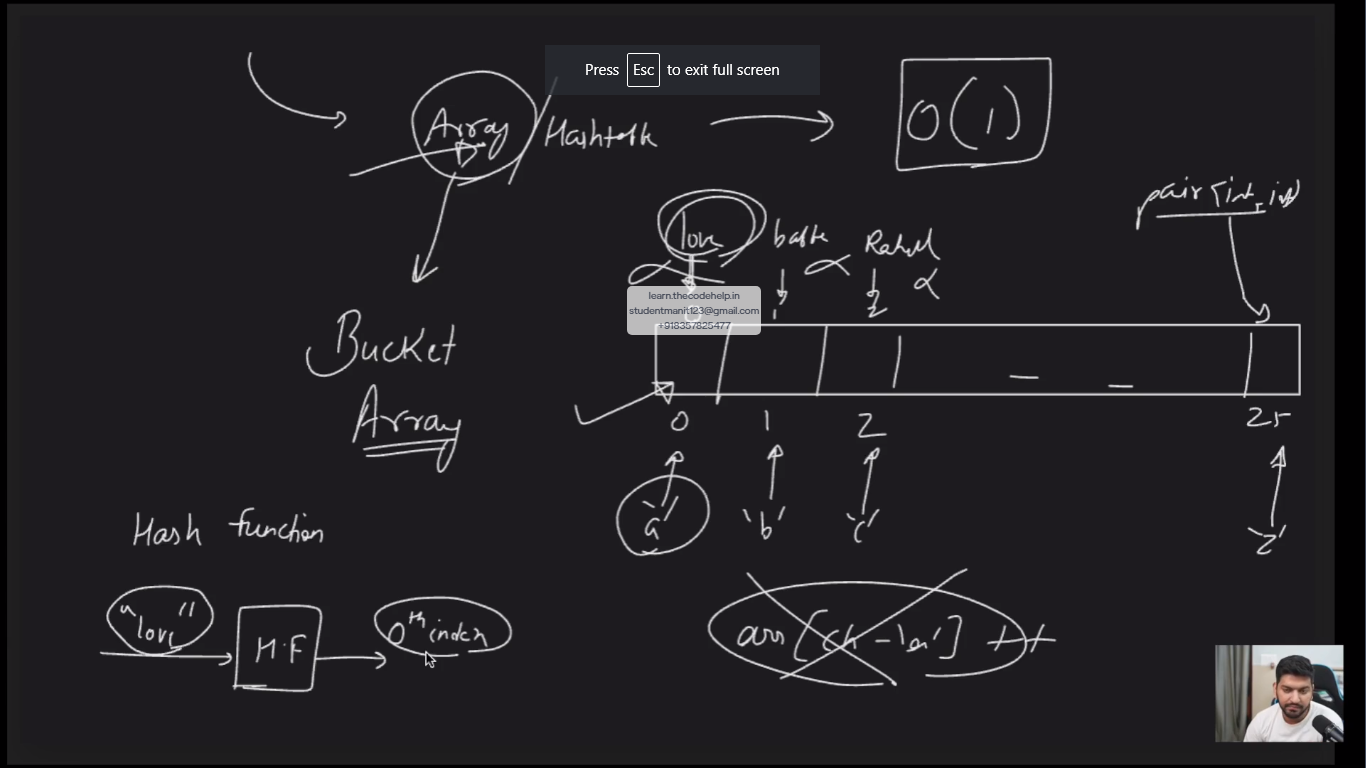 Press Esc to exit full screen
Array / Hashtable
O(1)
pair<int, int>
love
Rahul
learn.thecodehelp.in
studentmanit123@gmail.com
+918357825477
0
1
2
Bucket
Array
0 1 2 25
'a' 'b' 'c' 'z'
Hash function
"love"
H.F
0th index
arr[ch - 'a'] ++